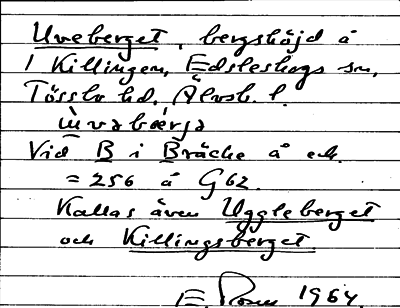 Uveberget, bergshöjd å
1 Killingen, Edsleskogs sn,
Tössbo hd, Älvsb. l.
ùvabærja
Vid B i Bräcke å ek.
= 256 å G62.
Kallas även Uggleberget
och Killingsberget.
E. 1964.